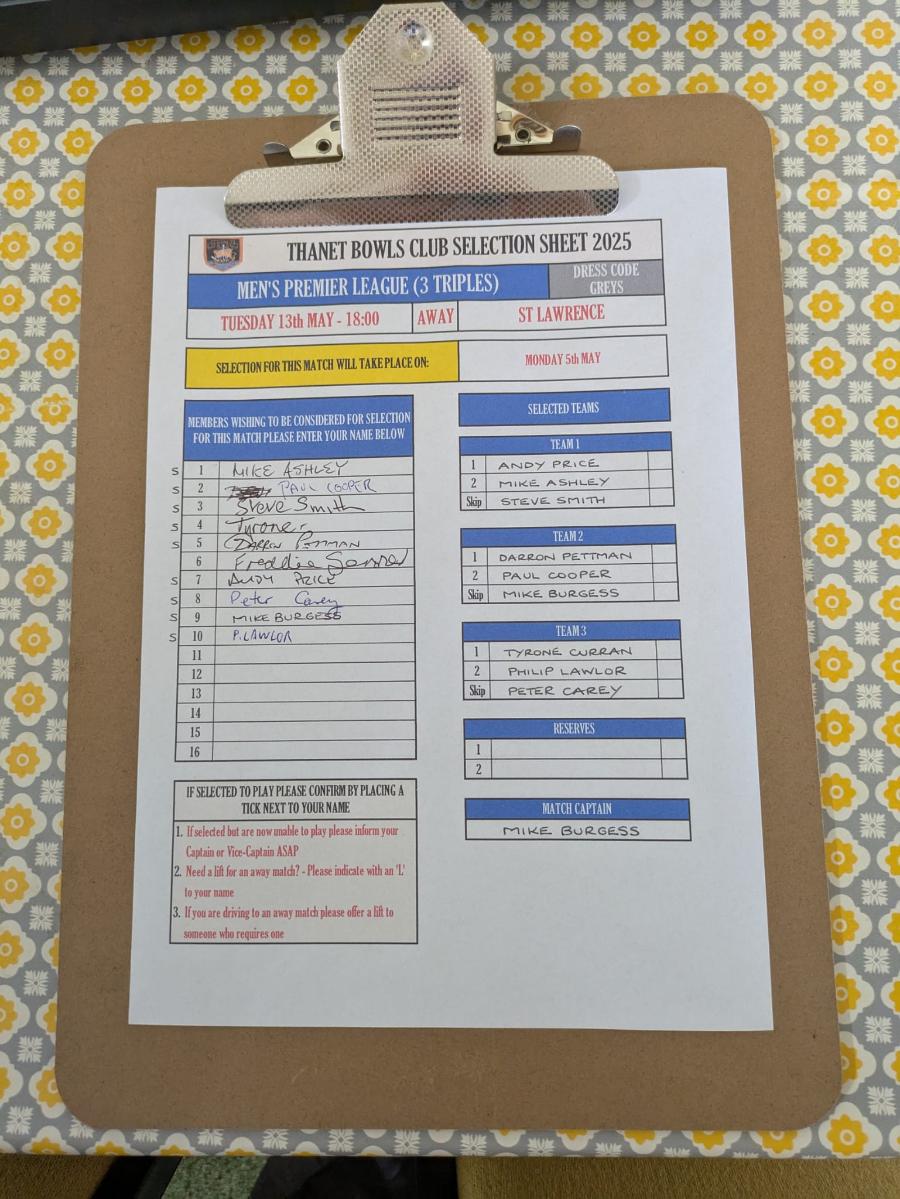 THANET BOWLS CLUB SELECTION SHEET 2025
MEN'S PREMIER LEAGUE (3 TRIPLES)
DRESS CODE
GREYS
TUESDAY 13th MAY - 18:00 AWAY ST LAWRENCE
SELECTION FOR THIS MATCH WILL TAKE PLACE ON: MONDAY 5th MAY
MEMBERS WISHING TO BE CONSIDERED FOR SELECTION
FOR THIS MATCH PLEASE ENTER YOUR NAME BELOW
S 1 MIKE ASHLEY
S 2 PAUL COOPER
S 3 Steve Smith
S 4 Tyrone
S 5 DARRON PETTMAN
6 Freddie
S 7 ANDY PRICE
S 8 Peter Carey
S 9 MIKE BURGESS
S 10 P. LAWLOR
11
12
13
14
15
16
IF SELECTED TO PLAY PLEASE CONFIRM BY PLACING A
TICK NEXT TO YOUR NAME
1. If selected but are now unable to play please inform your
Captain or Vice-Captain ASAP
2. Need a lift for an away match? - Please indicate with an 'L'
to your name
3. If you are driving to an away match please offer a lift to
someone who requires one
SELECTED TEAMS
TEAM 1
1 ANDY PRICE
2 MIKE ASHLEY
Skip STEVE SMITH
TEAM 2
1 DARRON PETTMAN
2 PAUL COOPER
Skip MIKE BURGESS
TEAM 3
1 TYRONE CURRAN
2 PHILIP LAWLOR
Skip PETER CAREY
RESERVES
1
2
MATCH CAPTAIN
MIKE BURGESS